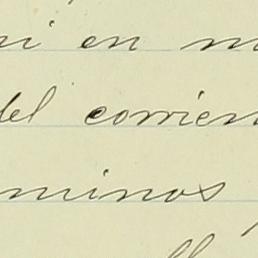 ni en m
del corrien
minos